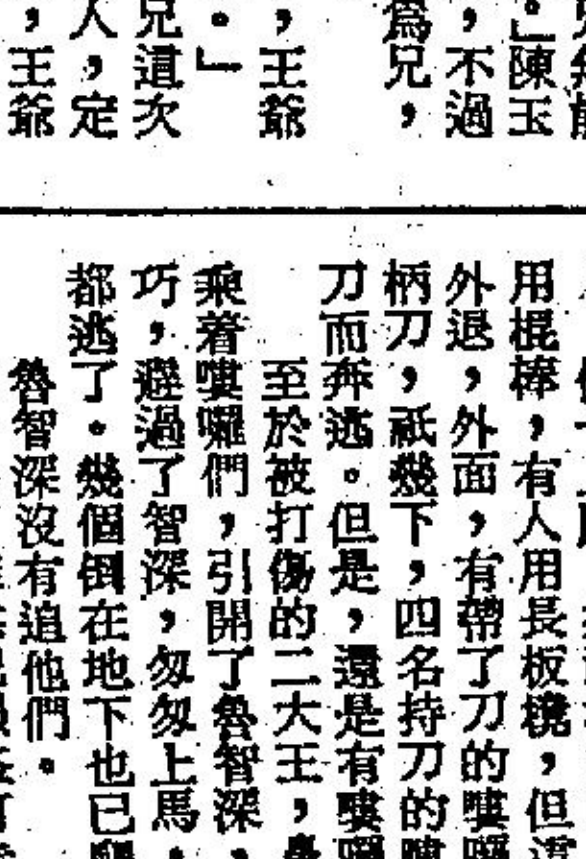 。』陳玉
，不過
為兄，
，王爺
。」
兄這次
人，定
，王爺
用棍棒，有人用長板櫈，但
外退，外面，有帶了刀的嘍囉
柄刀，祇幾下，四名持刀的嘍
刀而奔逃。但是，還是有嘍囉
至於被打傷的二大王，
乘着嘍囉們，引開了魯智深，
巧，避過了智深，匆匆上馬，
都逃了。幾個倒在地下也已
魯智深沒有追他們。